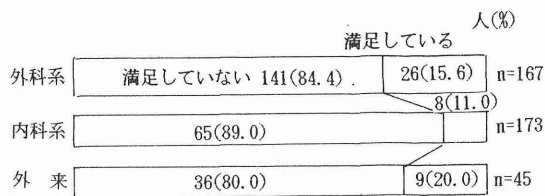 人(%)
満足している
外科系 満足していない 141(84.4) 26(15.6) n=167
8(11.0)
内科系 65(89.0) n=173
外 来 36(80.0) 9(20.0) n=45